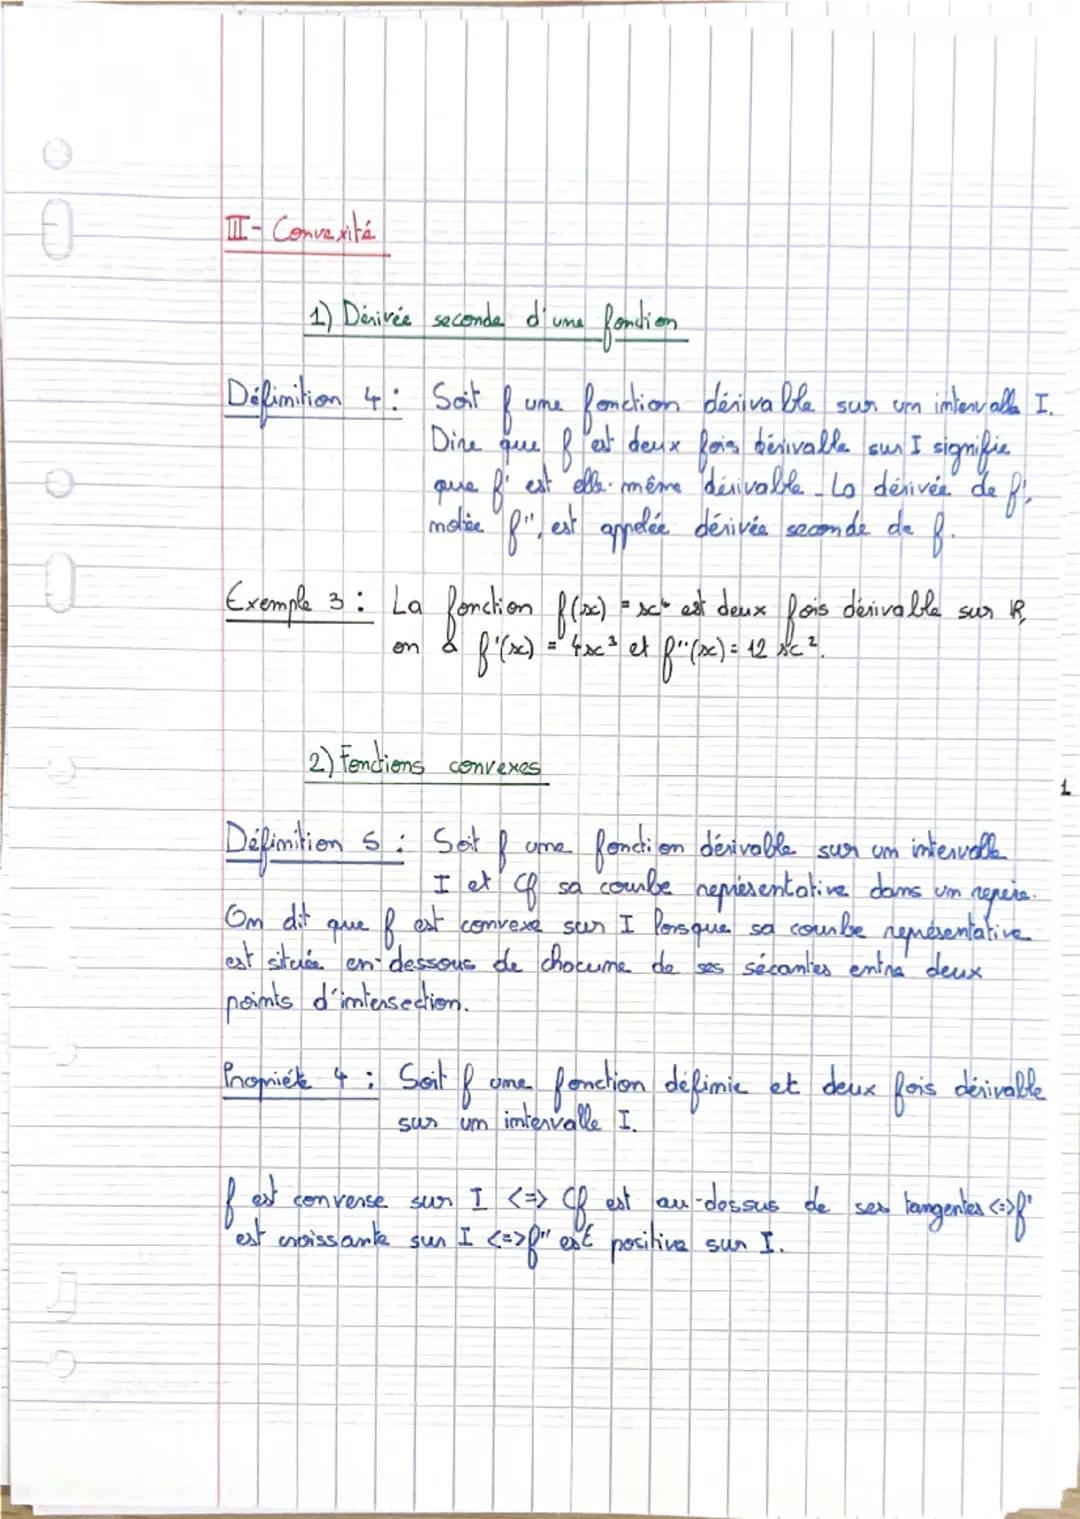 III- Convexité
1) Dérivée seconde d'une fonction
Définition 4 : Soit f une fonction dérivable sur un intervalle I.
Dire que f est deux fois dérivable sur I signifie
que f' est elle-même dérivable. La dérivée de f',
notée f'', est appelée dérivée seconde de f.
Exemple 3 : La fonction f(x) = x⁴ est deux fois dérivable sur ℝ,
on a f'(x) = 4x³ et f''(x) = 12 x².
2) Fonctions convexes
1
Définition 5 : Soit f une fonction dérivable sur un intervalle
I et Cf sa courbe représentative dans un repère.
On dit que f est convexe sur I lorsque sa courbe représentative
est située en-dessous de chacune de ses sécantes entre deux
points d'intersection.
Propriété 4 : Soit f une fonction définie et deux fois dérivable
sur un intervalle I.
f est converse sur I <=> Cf est au-dessus de ses tangentes <=> f'
est croissante sur I <=> f'' est positive sur I.